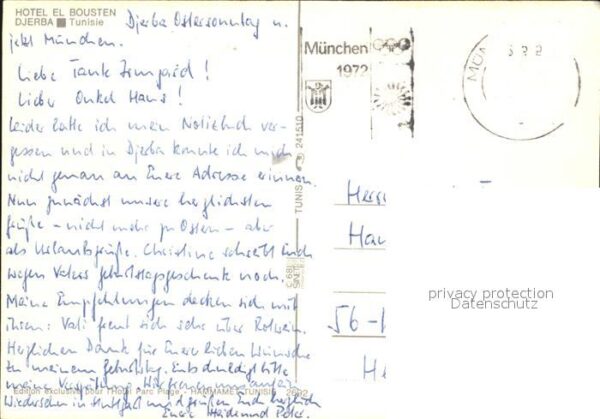 HOTEL EL BOUSTEN
DJERBA Tunisie
Djerba Ostersonntag u.
jetzt München.
Liebe Tante Irmgard!
Lieber Onkel Hans!
Leider hatte ich mein Notizbuch ver-
gessen und in Djerba konnte ich mich
nicht genau an Eure Adresse erinnern.
Nun zunächst unsere herzlichsten
Grüße - nicht mehr zu Ostern - aber
als Urlaubsgrüße. Christine schreibt Euch
wegen Vaters Geburtstagsgeschenke noch.
Meine Empfehlungen decken sich mit
ihren: Vati freut sich sehr über Rotwein.
Herzlichen Dank für Eure lieben Wünsche
zu meinem Geburtstag. Entschuldigt bitte
meine Verspätung. Wir freuen uns auf ein
Wiedersehen in Stuttgart und grüßen Euch herzlich
Eure Heide und Peter.
Edition exclusive pour l'Hotel Parc Plage - HAMMAMET TUNISIE 2692
TUNIS 241510
München
1972
MÜN
Herr
Han
56-
He
privacy protection
Datenschutz